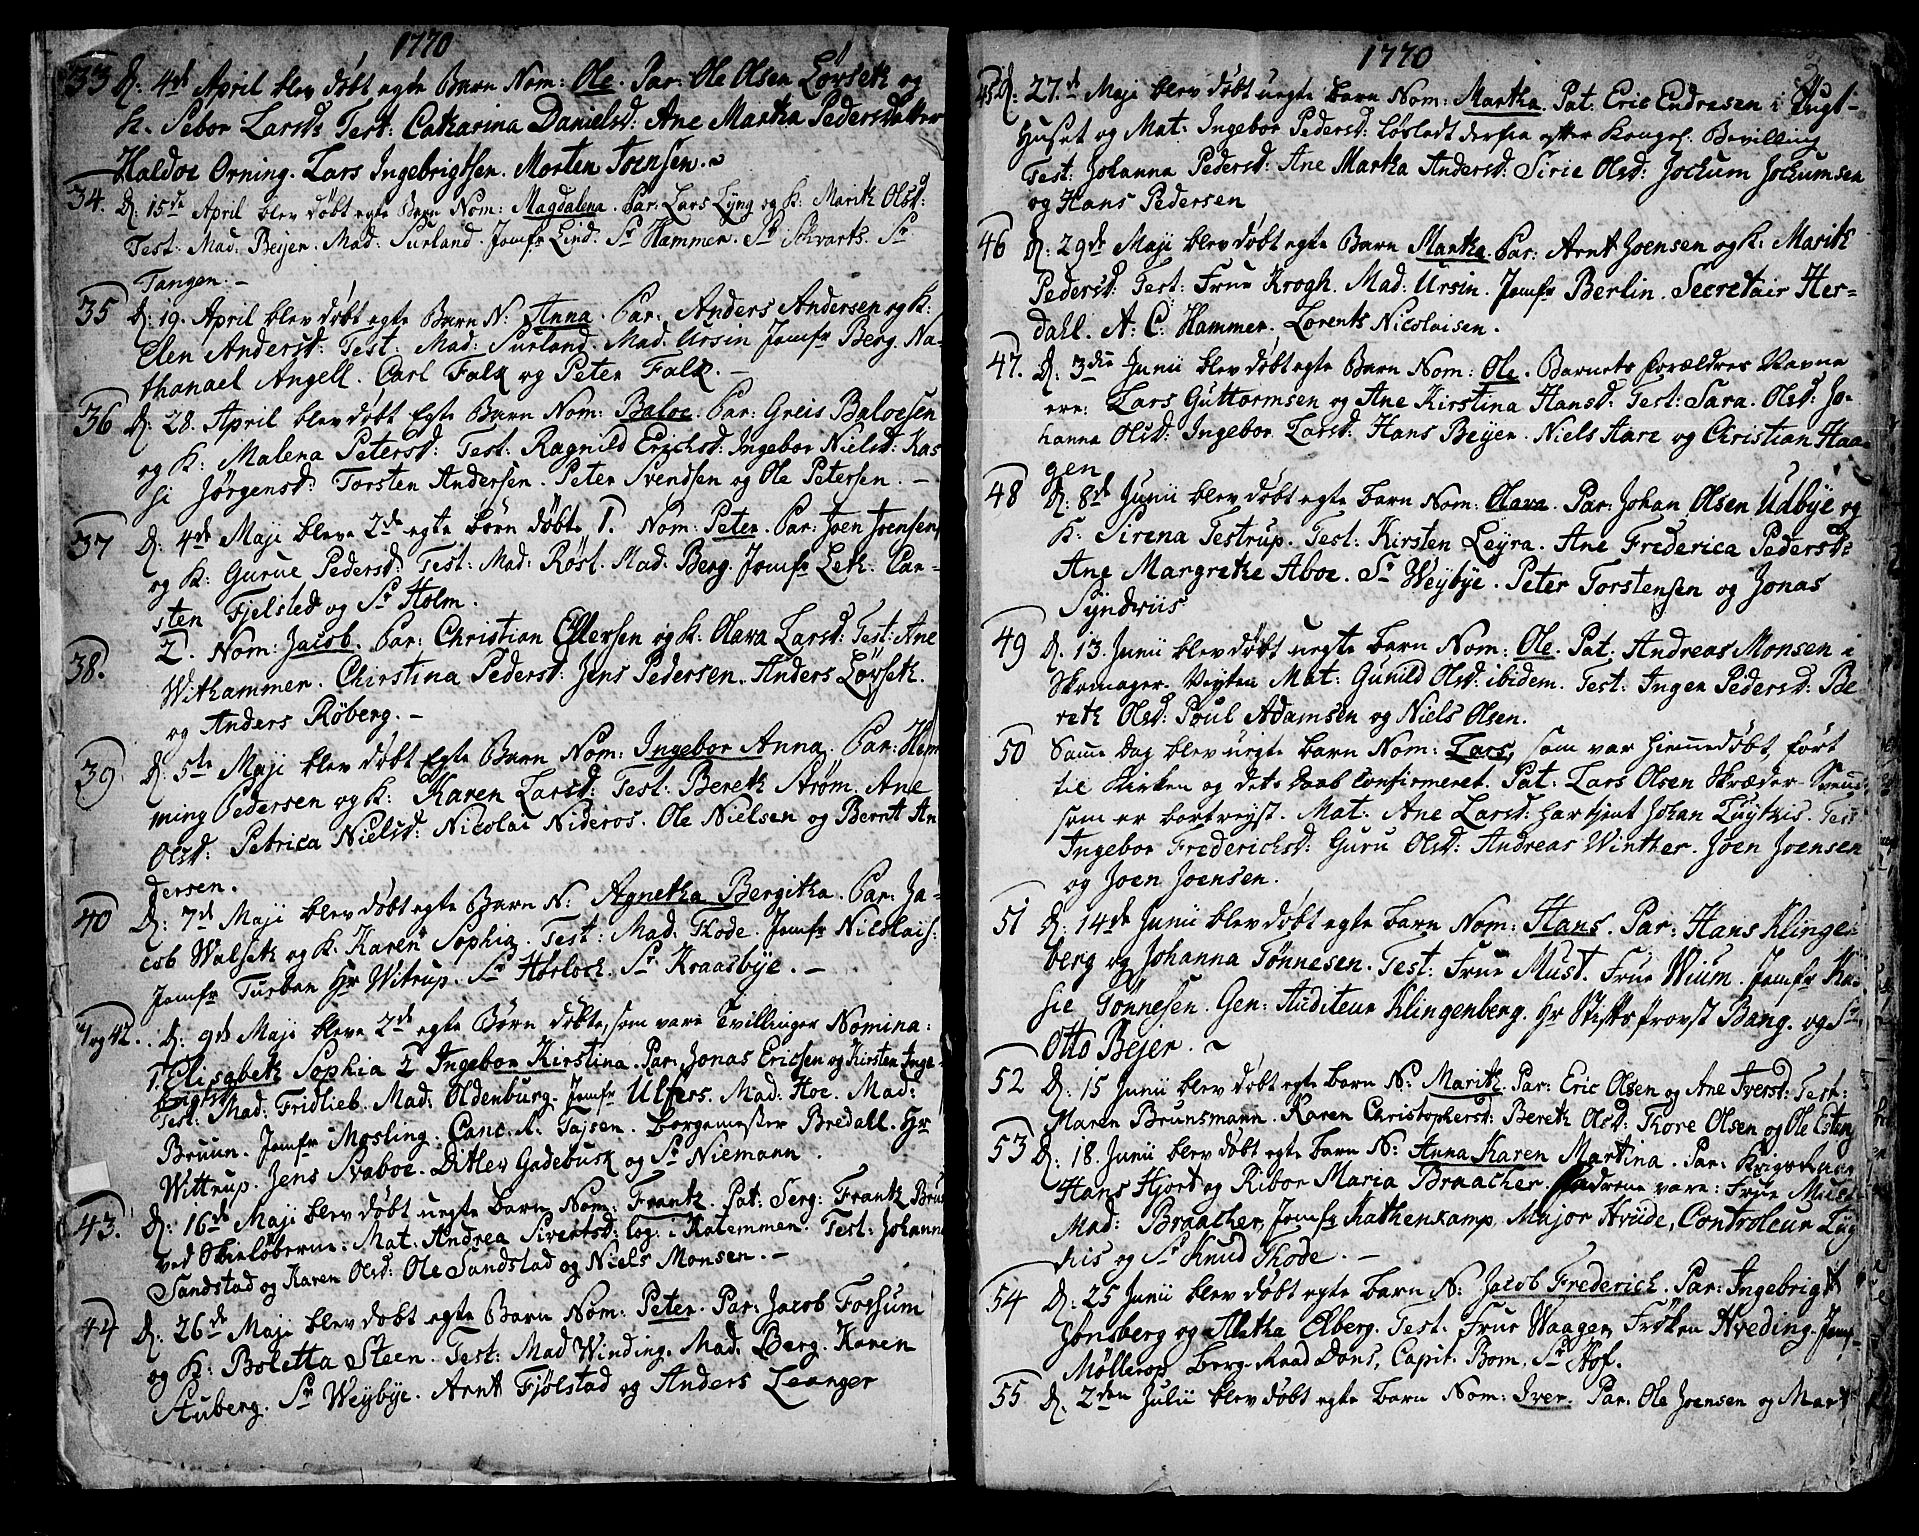 1770
33 D: 4de April blev døbt egte Barn Nom: Ole. Par: Ole Olsen Lövseth og
K. Sebor Larsd: Test: Catharina Danielsd: Ane Martha Pedersdatter
Haldoe Orning. Lars Ingebrigtsen. Morten Joensen.
34. D: 15de April blev døbt egte Barn Nom: Magdalena. Par: Lars Lyng og K: Marith Olsd:
Test: Mad: Beyer. Mad: Surland. Jomfr Lind. Sr Hammer. Sr Schvarts. Sr
Tangen: -
35 D: 19. April blev døbt egte Barn N: Anna. Par: Anders Andersen og K:
Elen Andersd: Test: Mad: Surland. Mad: Ursin Jomfr Berg. Na-
thanael Angell. Carl Falk og Peter Falk. -
36 D: 28. April blev døbt Egte Barn Nom: Baloe. Par: Greis Baloesen
og K: Malena Petersd: Test: Ragnild Erichsd: Ingebor Nielsd: Kas
si Jörgensd: Torsten Andersen. Peter Svendsen og Ole Petersen. -
37 D: 4de Maji bleve 2de egte Börn döbte 1. Nom: Peter. Par: Joen Joensen
og K: Gurue Pedersd: Test: Mad: Røst. Mad: Berg. Jomfr Leth. Car-
sten Fjelsted og Sr Holm.
38. 2. Nom: Jacob. Par: Christian Ellersen og K: Olava Larsd: Test: Ane
Withammer. Chirstina Pedersd: Jens Pedersen. Anders Lövseth.
og Anders Röberg. -
39 D: 5te Maji blev døbt Egte Barn Nom: Ingebor Anna. Par: Hem
ming Pedersen og K: Karen Larsd: Test: Bereth Strøm. Ane
Olsd: Petrica Nielsd: Nicolai Nideros. Ole Nielsen og Bernt An
dersen.
40 D: 7de Maji blev døbt egte Barn N: Agnetha Bergitha. Par: Ja-
cob Walseth og K. Karen Sophia. Test: Mad: Thode. Jomfr Nicolais:
Jomfr Turban Hr Witrup. Sr Horloch. Sr Kraasbye. -
41 og 42. D: 9de Maji bleve 2de egte Börn døbte, som vare Tvillinger Nomina:
1. Elisabeth Sophia 2 Ingebor Kirstina. Par: Jonas Ericsen og Kirsten Inge-
brigtsd
Test: Mad: Fridlieb. Mad: Oldenburg. Jomfr Ulfers. Mad: Hoe. Mad:
Bruun. Jomfr Mosling. Canc. R. Tajsen. Borgemester Bredall. Hr
Wittrup. Jens Svaboe. Ditlev Gadebusk og Sr Niemann.
43. D: 16de Maji blev døbt uegte Barn Nom: Frantz. Pat: Serg: Frantz Bruu
ved Skielöberne: Mat: Andrea Sivertsd: log: i Katemmen. Test: Johanna
Sandstad og Karen Olsd: Ole Sandstad og Niels Monsen. -
44 D: 26de Maji blev døbt egte Barn Nom: Peter. Par: Jacob Forsum
og K: Boletta Steen. Test: Mad Winding. Mad: Berg. Karen
Auberg. Sr Weybye. Arnt Fjölstad og Anders Leanger
1770
45 D: 27.de Maji blev døbt uegte Barn Nom: Martha. Pat: Eric Endresen i Tugt-
Huset og Mat: Ingebor Pedersd: løsladt derfra efter Kongel. Bevilling
Test: Johanna Pedersd: Ane Martha Andersd: Sirie Olsd: Jochum Jochumsen
og Hans Pedersen
46 D: 29de Maji blev døbt egte Barn Martha. Par: Arnt Joensen og K: Marith
Pedersd: Test: Frue Krogh. Mad: Ursin. Jomfr Berlin. Secretair Her-
dahl. A: C: Hammer. Lorents Nicolaisen.
47. D. 3die Junii blev døbt egte Barn Nom: Ole. Barnets Forældres Navne
ere: Lars Guttormsen og Ane Kirstina Hansd: Test: Sara. Olsd: Jo-
hanna Olsd: Ingebor Larsd: Hans Beyer. Niels Aare og Christian Haa-
gen
48 D: 8de Junii blev døbt egte Barn Nom: Olava. Par: Johan Olsen Udbye og
K: Sirena Testrup. Test: Kirsten Leyra. Ane Frederica Pedersd:
Ane Margrethe Aboe. Sr Weybye. Peter Torstensen og Jonas
Syndriis
49 D. 13. Junii blev døbt uegte Barn Nom: Ole. Pat: Andreas Monsen i
Skomager-Veyten Mat: Gunild Olsd: ibidem. Test: Inger Pedersd: Be-
reth Olsd: Poul Adamsen og Niels Olsen.
50 Samme Dag blev uegte Barn Nom: Lars, som var hiemmedøbt, fört
til Kirken og dets Daab Confirmeret. Pat: Lars Olsen Skræder-Svend
som er bortreyst. Mat: Ane Larsd: har tjent Johan Luythis. Test
Ingebor Frederichsd: Guru Olsd: Andreas Winther. Joen Joensen
og Joen Joensen.
51 D: 14de Junii blev døbt egte Barn Nom: Hans. Par: Hans Klingen-
berg og Johanna Tönnesen. Test: Frue Must. Frue Wium. Jomfr Ka-
sie Tönnesen. Gen: Auditeur Klingenberg. Hr Stiftsprovst Bang. og Sr
Otto Bejer.
52 D: 15 Junii blev døbt egte Barn N: Marith. Par: Eric Olsen og Ane Iversd: Test:
Maren Brunsmann. Karen Christophersd: Bereth Olsd: Thore Olsen og Ole Esteng
53 D: 18 Junii blev døbt egte Barn N: Anna Karen Martina. Par:
Hans Hjort og Ribor Maria Braacher. Fadrene vare: Frue Must
Mad: Braacher, Jomfr Rathenkamp, Major Hvide, Controleur Luy
this og Sr Knud Thode. -
54 D: 25 Junii blev døbt egte Barn N: Jacob Frederich. Par: Ingebrigt
Jönsberg og Aletha Elberg. Test: Frue Waagen, Frøken Hveding. Jomf-
Møllerop Berg-Raad Dons, Capit. Bom, Sr Hof.
55 D. 2den Julii blev døbt egte Barn Nom: Iver. Par. Ole Joensen og Mart